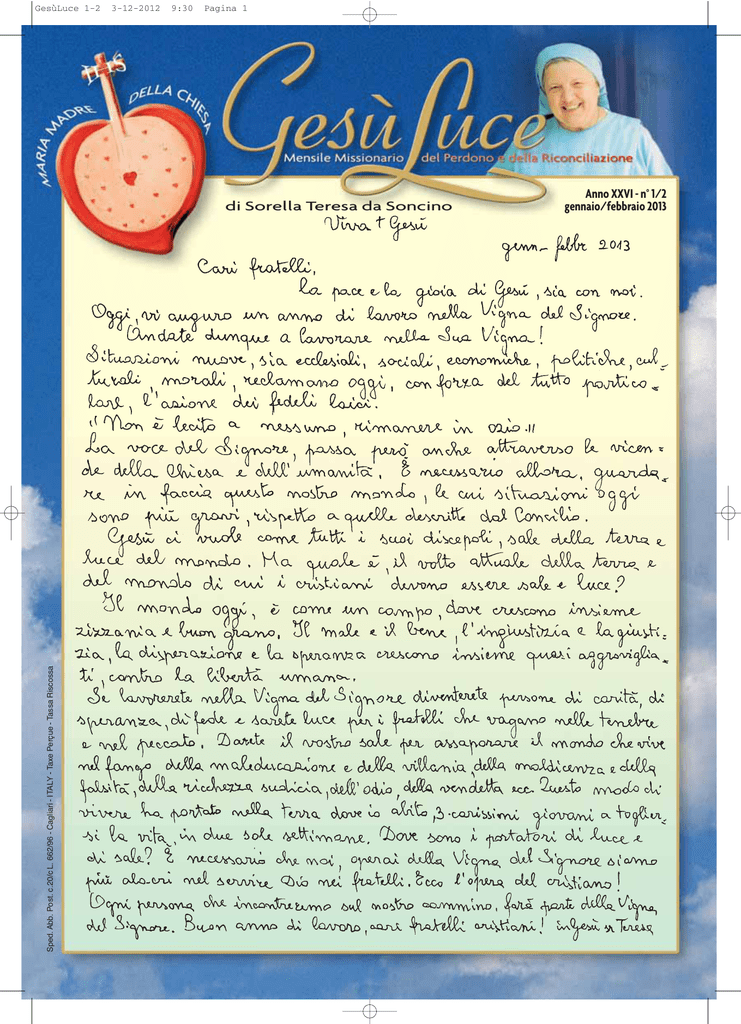 GesùLuce 1-2 3-12-2012 9:30 Pagina 1
MARIA MADRE DELLA CHIESA
Gesù Luce
Mensile Missionario del Perdono e della Riconciliazione
Anno XXVI - n° 1/2
gennaio/febbraio 2013
di Sorella Teresa da Soncino
Viva + Gesù
genn- febbr 2013
Cari fratelli,
la pace e la gioia di Gesù, sia con noi.
Oggi, vi auguro un anno di lavoro nella Vigna del Signore.
Andate dunque a lavorare nella Sua Vigna!
Situazioni nuove, sia ecclesiali, sociali, economiche, politiche, cul-
turali, morali, reclamano oggi, con forza del tutto partico-
lare, l'azione dei fedeli laici.
"Non è lecito a nessuno, rimanere in ozio."
La voce del Signore, passa però anche attraverso le vicen-
de della Chiesa e dell'umanità. È necessario allora, guarda-
re in faccia questo nostro mondo, le cui situazioni oggi
sono più gravi, rispetto a quelle descritte dal Concilio.
Gesù ci vuole come tutti i suoi discepoli, sale della terra e
luce del mondo. Ma quale è, il volto attuale della terra e
del mondo di cui i cristiani devono essere sale e luce?
Il mondo oggi, è come un campo, dove crescono insieme
zizzania e buon grano. Il male e il bene, l'ingiustizia e la giusti-
zia, la disperazione e la speranza crescono insieme quasi aggroviglia-
ti, contro la libertà umana.
Se lavorerete nella Vigna del Signore diventerete persone di carità, di
speranza, di fede e sarete luce per i fratelli che vagano nelle tenebre
e nel peccato. Darete il vostro sale per assaporare il mondo che vive
nel fango della maleducazione e della villania, della maldicenza e della
falsità, della ricchezza sudicia, dell'odio, della vendetta ecc. Questo modo di
vivere ha portato nella terra dove io abito, 3 carissimi giovani a toglier-
si la vita, in due sole settimane. Dove sono i portatori di luce e
di sale? È necessario che noi, operai della Vigna del Signore siamo
più alacri nel servire Dio nei fratelli. Ecco l'opera del cristiano!
Ogni persona che incontreremo sul nostro cammino, farà parte della Vigna
del Signore. Buon anno di lavoro, cari fratelli cristiani! in Gesù sr Teresa
Sped. Abb. Post. c.20/c L. 662/96 - Cagliari - ITALY - Taxe Perçue - Tassa Riscossa